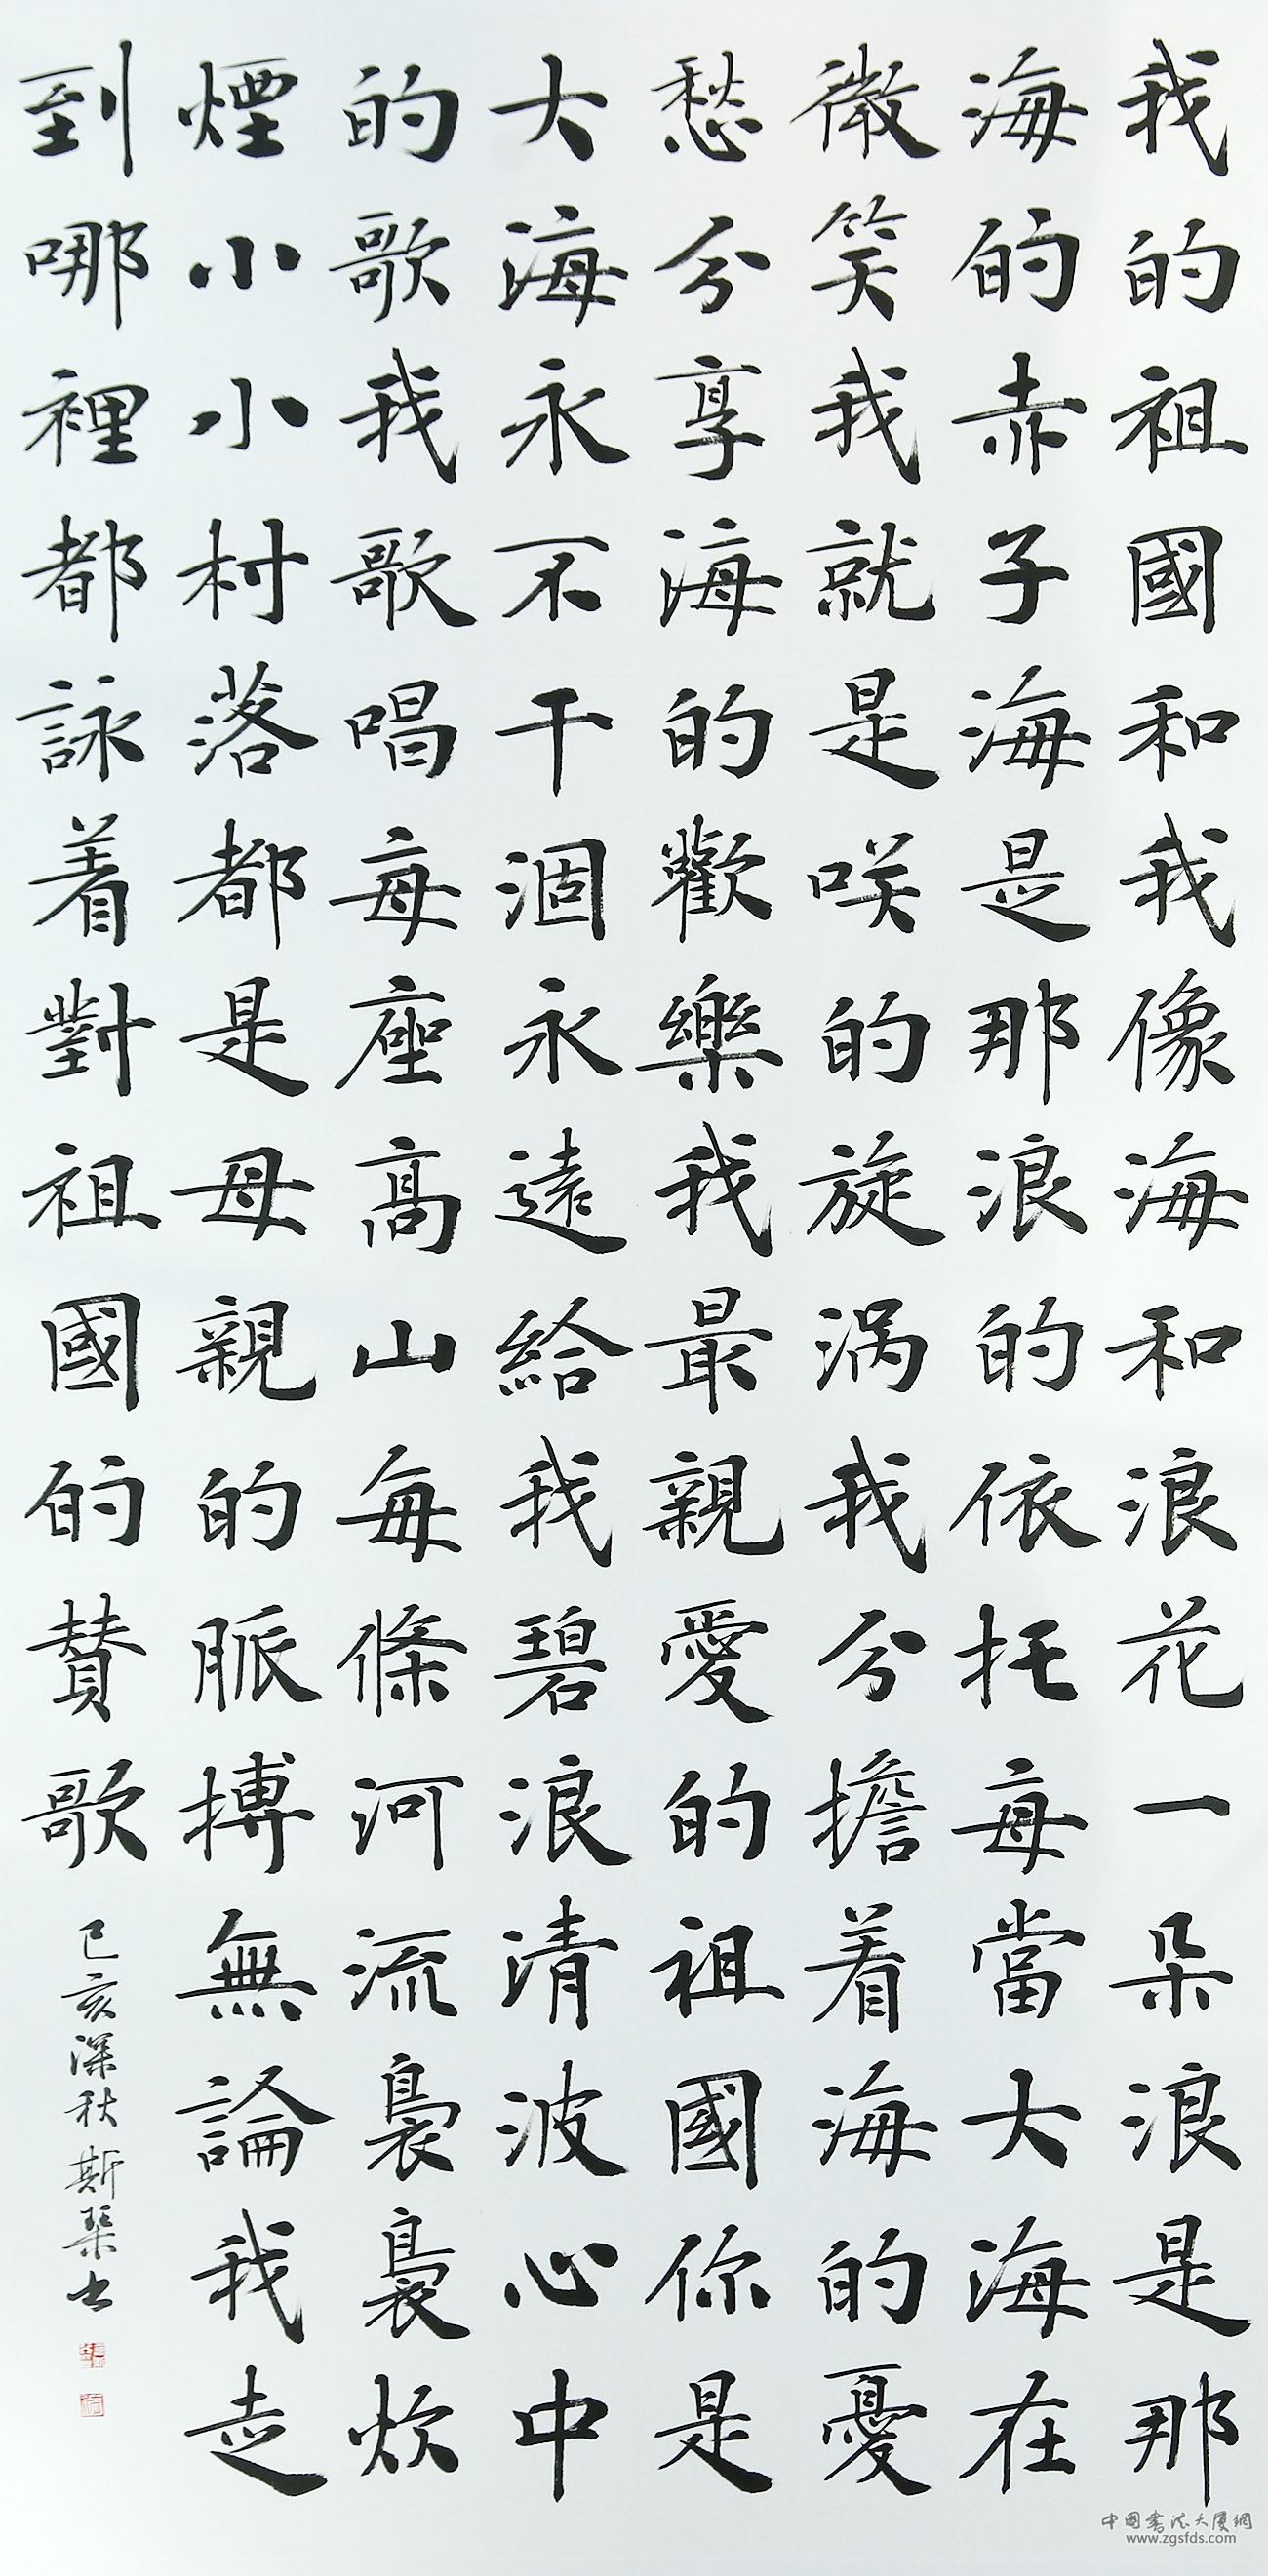 我的祖國和我像海和浪花一朵浪是那
海的赤子海是那浪的依托每當大海在
微笑我就是咲的旋涡我分擔着海的憂
愁分享海的歡樂我最親愛的祖國你是
大海永不干涸永遠給我碧浪清波心中
的歌我歌唱每座高山每條河流裊裊炊
煙小小村落都是母親的脈搏無論我走
到哪裡都詠着對祖國的賛歌
己亥深秋斯琴书
中国書法大厦網
www.zgsfds.com